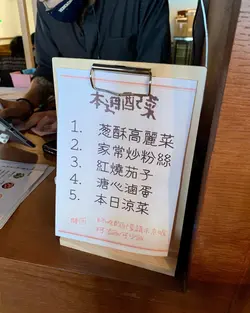 本週配菜
1. 蔥酥高麗菜
2. 家常炒粉絲
3. 紅燒茄子
4. 溏心滷蛋
5. 本日涼菜